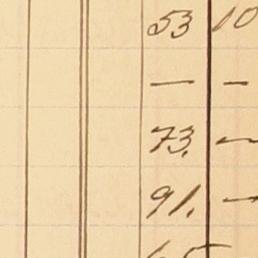 53 10
— —
73. —
91. —
65